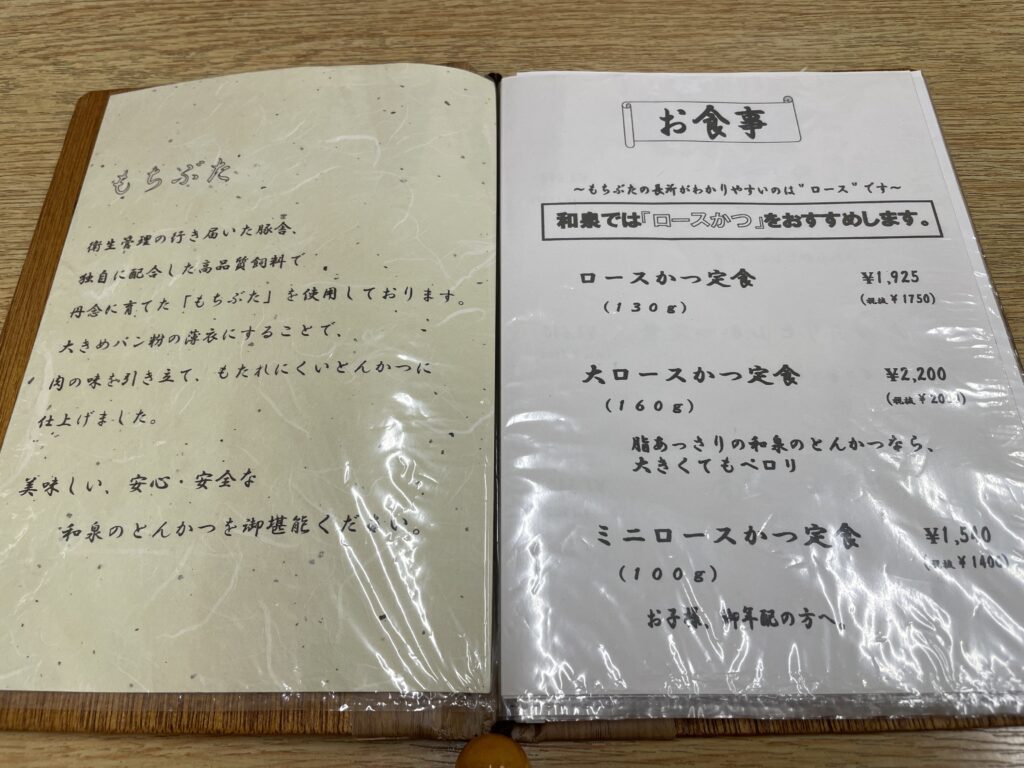 もちぶた
衛生管理の行き届いた豚舎、
独自に配合した高品質飼料で
丹念に育てた「もちぶた」を使用しております。
大きめパン粉の薄衣にすることで、
肉の味を引き立て、もたれにくいとんかつに
仕上げました。
美味しい、安心・安全な
和泉のとんかつを御堪能ください。
お食事
～もちぶたの長所がわかりやすいのは"ロース"です～
和泉では『ロースかつ』をおすすめします。
ロースかつ定食 ¥1,925
(130g) (税抜¥1750)
大ロースかつ定食 ¥2,200
(160g) (税抜¥2000)
脂あっさりの和泉のとんかつなら、
大きくてもペロリ
ミニロースかつ定食 ¥1,540
(100g) (税抜¥1400)
お子様、御年配の方へ。